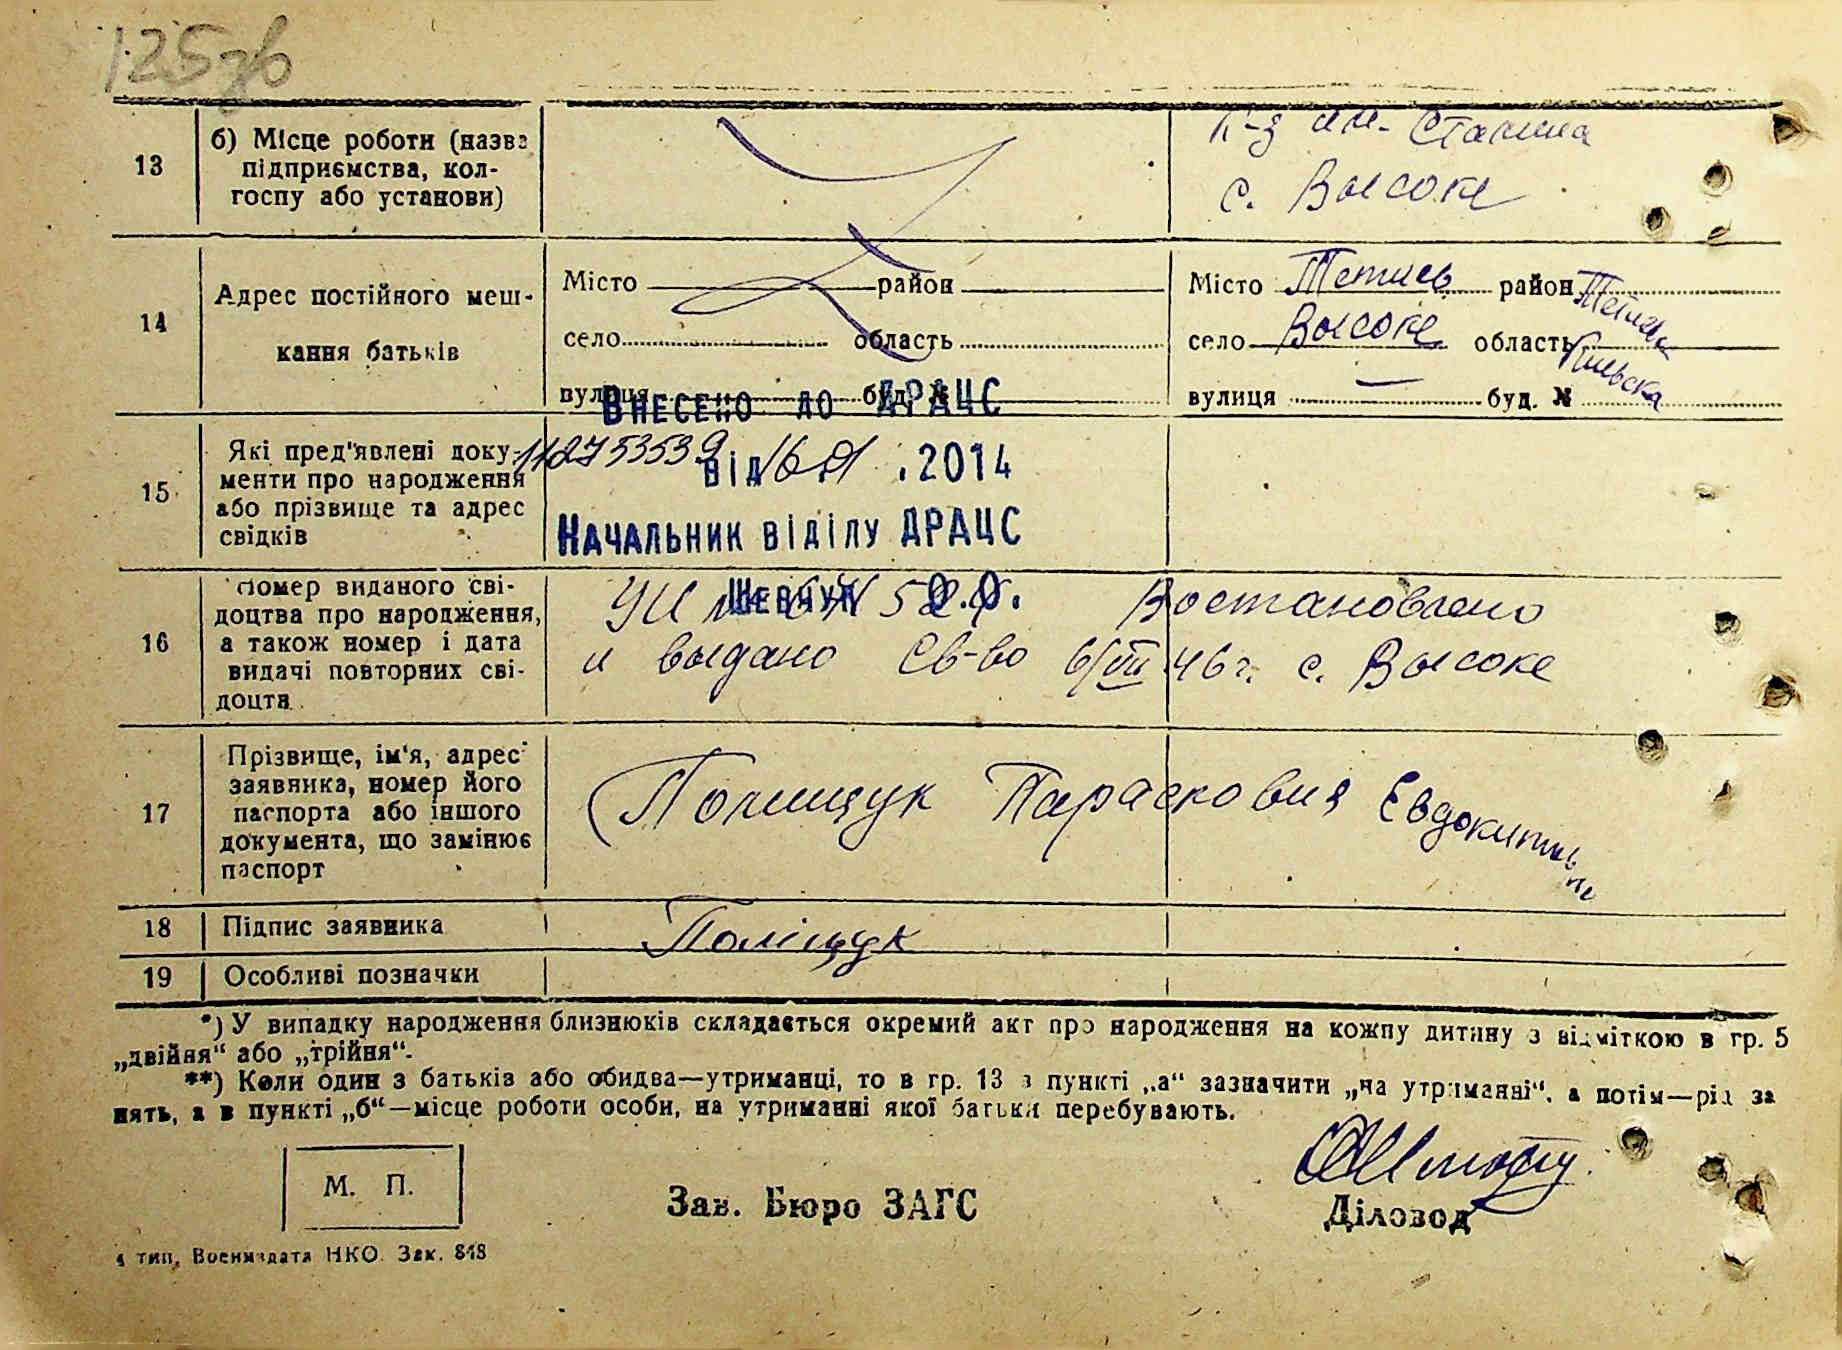 125 зв
13
б) Місце роботи (назва
підприємства, кол-
госпу або установи)
К-з им. Сталина
с. Высоке
14
Адрес постійного меш-
кання батьків
Місто район
село область
вулиця буд. №
Місто Тетиев район
село Высоке область
вулиця — буд. №
Внесено до ДРАЦС
15
Які пред'явлені доку-
менти про народження
або прізвище та адрес
свідків
від 16 01 .2014
Начальник відділу ДРАЦС
Шевчук О.О.
16
Номер виданого сві-
доцтва про народження,
а також номер і дата
видачі повторних сві-
доцтв
Востановлено
и выдано Св-во 6/VIII 46 г. с. Высоке
17
Прізвище, ім'я, адрес
заявника, номер його
паспорта або іншого
документа, що замінює
паспорт
Полищук Парасковия
18
Підпис заявника
Поліщук
19
Особливі позначки
*) У випадку народження близнюків складається окремий акт про народження на кожну дитину з відміткою в гр. 5
„двійня“ або „трійня“.
**) Коли один з батьків або обидва—утриманці, то в гр. 13 в пункті „а“ зазначити „на утриманні“, а потім—рід за
нять, а в пункті „б“—місце роботи особи, на утриманні якої батьки перебувають.
М. П.
Зав. Бюро ЗАГС
Діловод
4 тип. Воениздата НКО. Зак. 848